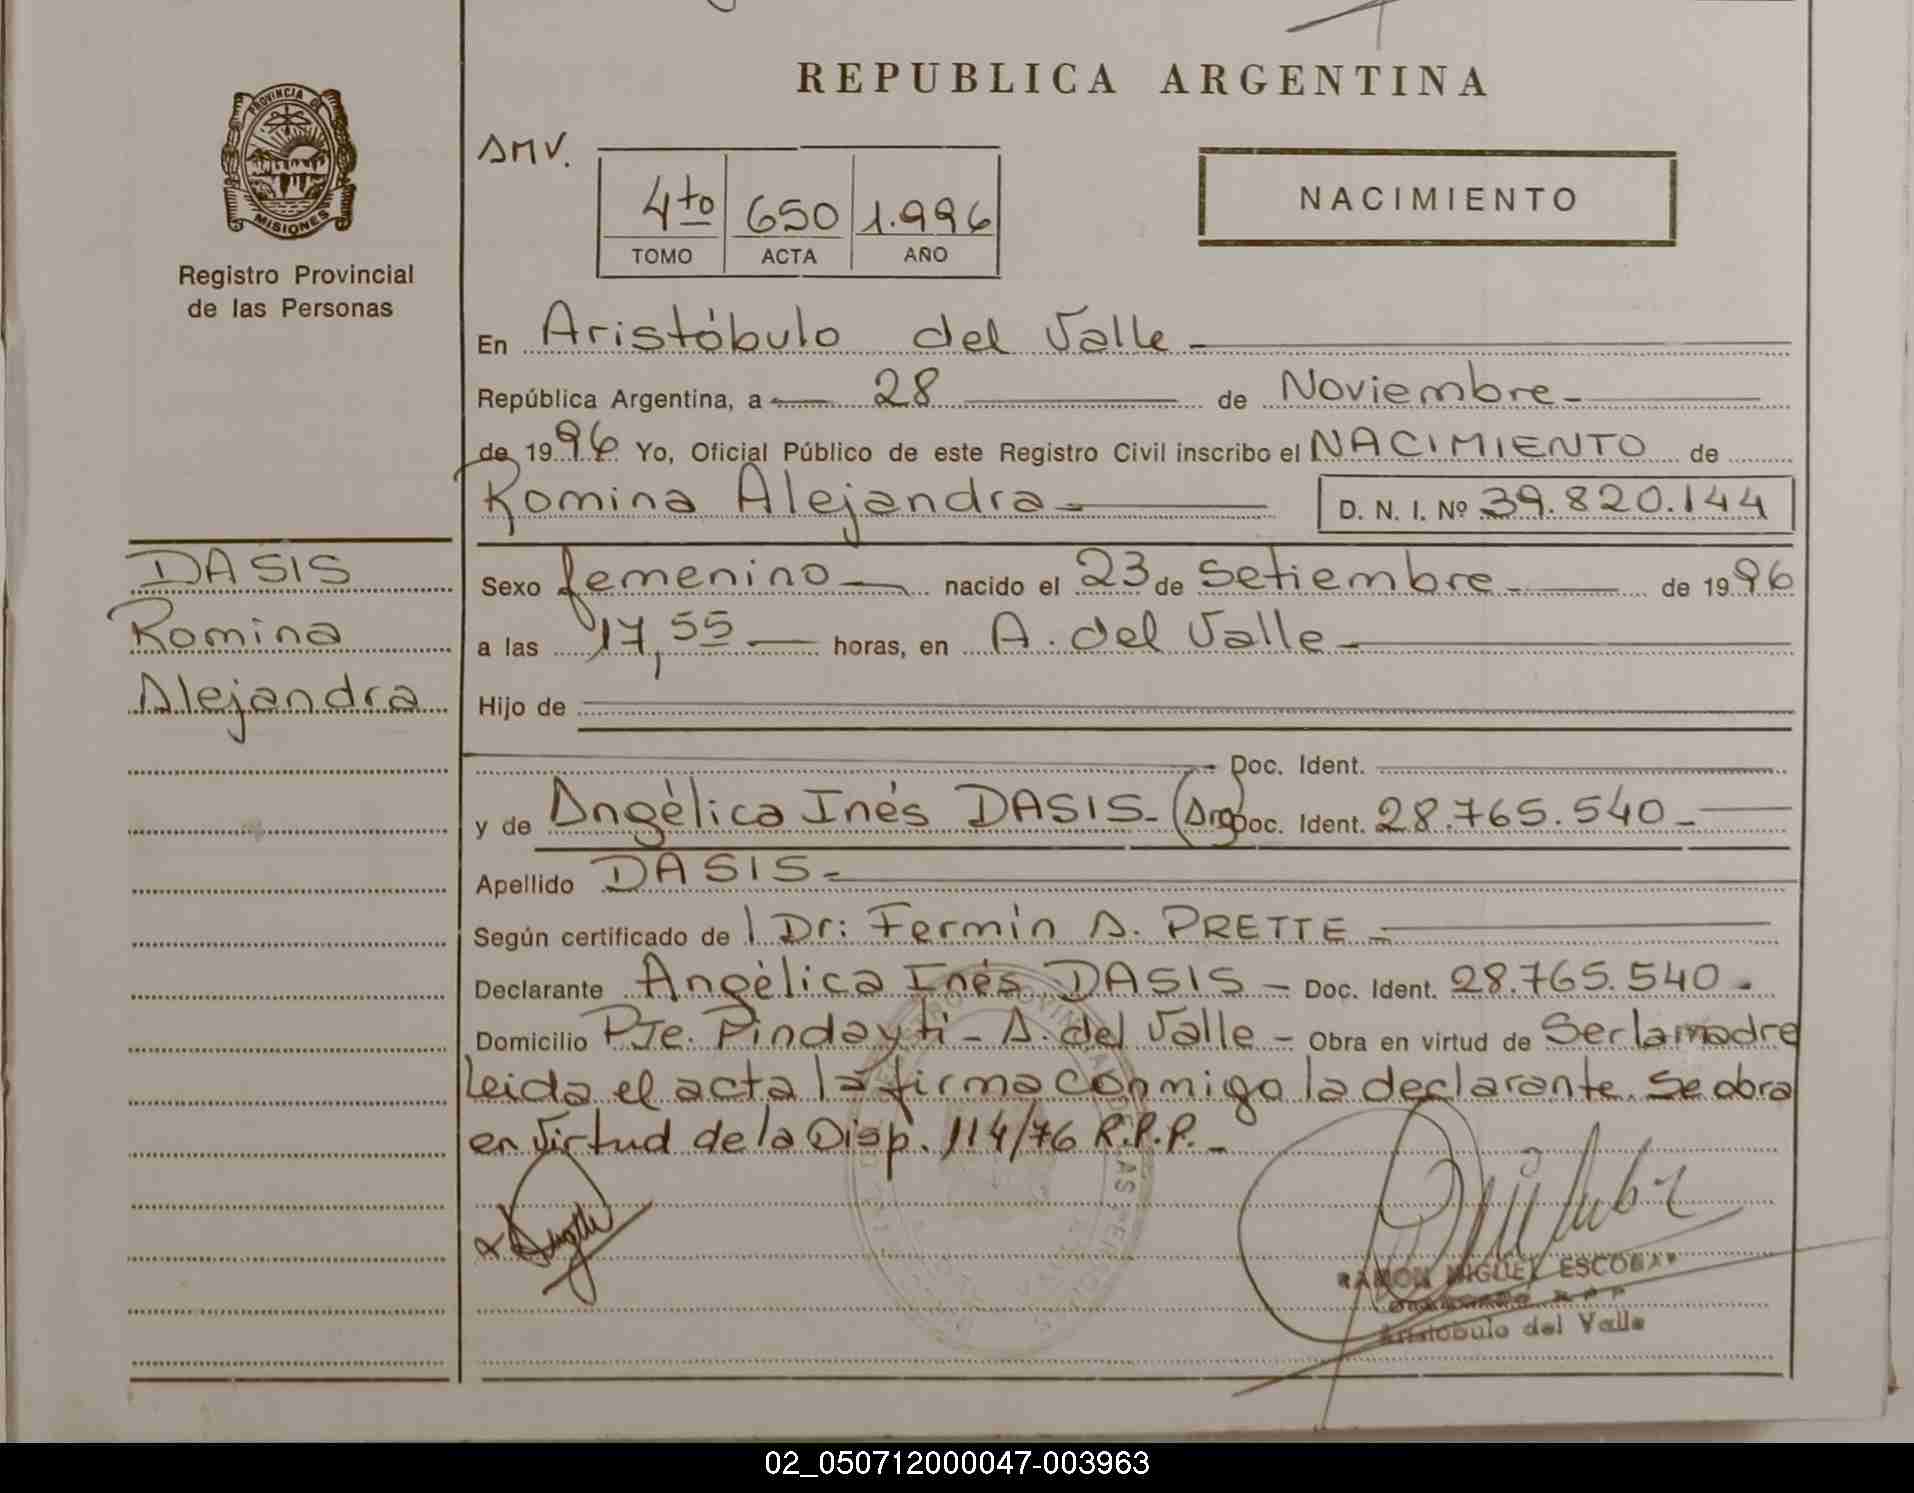 REPUBLICA ARGENTINA
PROVINCIA DE
MISIONES
Registro Provincial
de las Personas
AMV.
4to 650 1.996
TOMO ACTA AÑO
NACIMIENTO
En Aristóbulo del Valle
República Argentina, a 28 de Noviembre
de 1996 Yo, Oficial Público de este Registro Civil inscribo el NACIMIENTO de
Romina Alejandra D. N. I. Nº 39.820.144
DASIS
Romina
Alejandra
Sexo femenino nacido el 23 de Setiembre de 1996
a las 17,55 horas, en A. del Valle
Hijo de
Doc. Ident.
y de Angélica Inés DASIS - (Arg) Doc. Ident. 28.765.540
Apellido DASIS
Según certificado de l Dr: Fermín A. PRETTE
Declarante Angélica Inés DASIS - Doc. Ident. 28.765.540
Domicilio Pje. Pindayti - A. del Valle - Obra en virtud de Ser la madre
Leida el acta la firma conmigo la declarante. Se obra
en virtud de la Disp. 114/76 R.P.P.
RAMON MIGUEL ESCOBAR
Aristóbulo del Valle
02_050712000047-003963